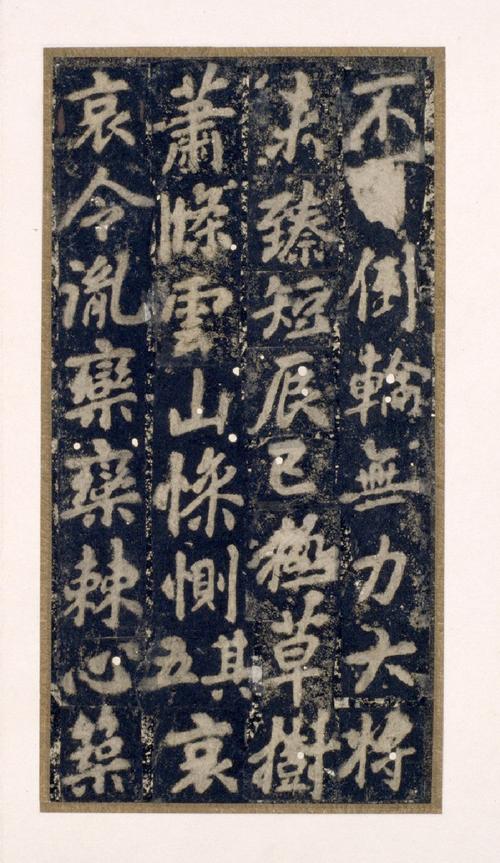 不倒輪無力大將
未臻短辰已極草樹
蕭條雲山慘惻其五哀
哀令胤欒欒棘心築